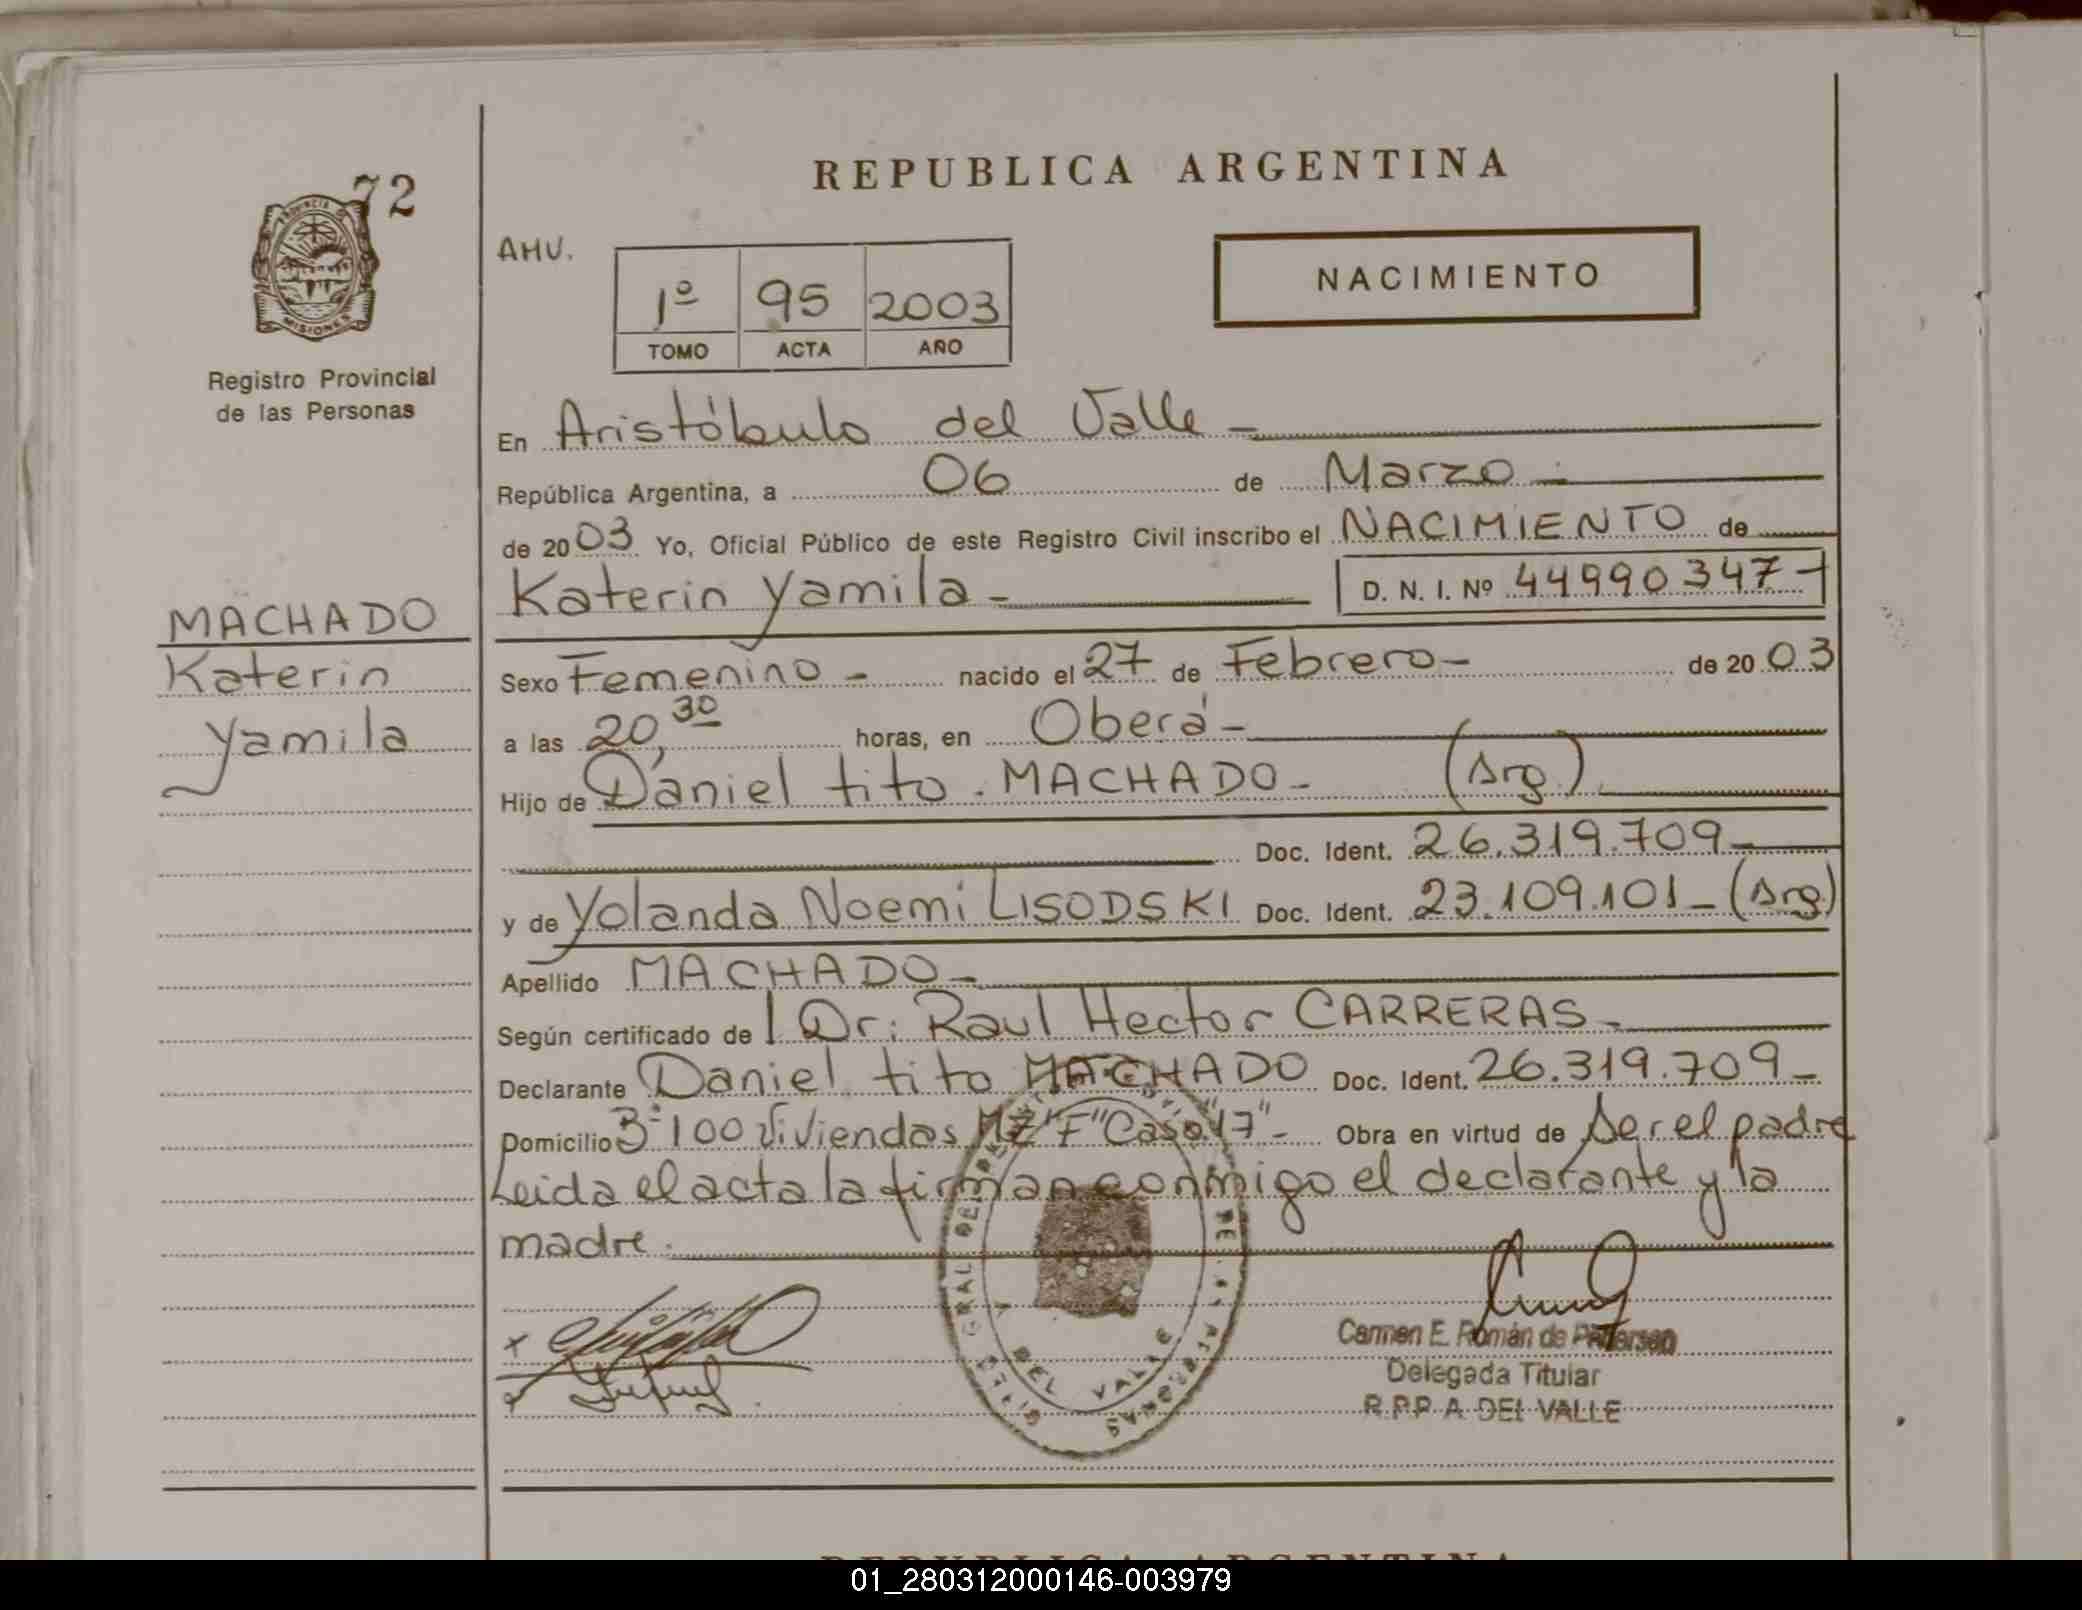 REPUBLICA ARGENTINA
72
PROVINCIA DE
MISIONES
Registro Provincial
de las Personas
AHU.
1º 95 2003
TOMO ACTA AÑO
NACIMIENTO
MACHADO
Katerin
Yamila
En Aristóbulo del Valle -
República Argentina, a 06 de Marzo -
de 2003 Yo, Oficial Público de este Registro Civil inscribo el NACIMIENTO de
Katerin Yamila - D. N. I. Nº 44990347-
Sexo Femenino - nacido el 27 de Febrero - de 20 03
a las 20,30 horas, en Oberá -
Hijo de Daniel tito. MACHADO - (Arg.)
Doc. Ident. 26.319.709-
y de Yolanda Noemi LISODSKI Doc. Ident. 23.109.101 - (Arg)
Apellido MACHADO -
Según certificado de l Dr: Raul Hector CARRERAS -
Declarante Daniel tito MACHADO Doc. Ident. 26.319.709 -
Domicilio Bº 100 Viviendas MZ "F" Casa "17" - Obra en virtud de Ser el padre
Leida el acta la firman conmigo el declarante y la
madre.
DEL VALLE
Carmen E. Román de Petterson
Delegada Titular
R.P.P. A. DEL VALLE
REPUBLICA ARGENTINA
01_280312000146-003979